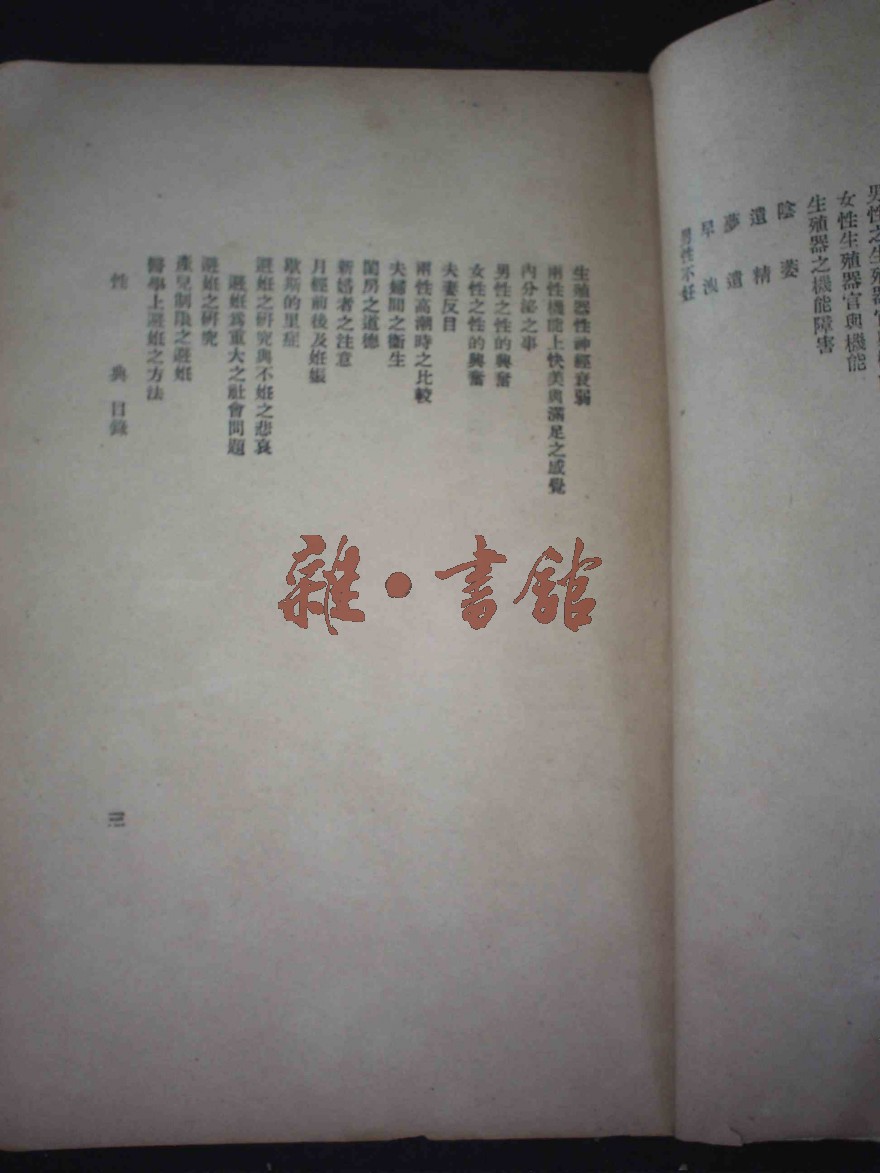 女性生殖器官與機能
生殖器之機能障害
陰萎
遺精
夢遺
早洩
男性不妊
生殖器性神經衰弱
兩性機能上快美與滿足之感覺
內分泌之事
男性之性的興奮
女性之性的興奮
夫妻反目
兩性高潮時之比較
夫婦間之衞生
閨房之道德
新婚者之注意
月經前後及妊娠
歇斯的里症
避妊之研究與不妊之悲哀
避妊爲重大之社會問題
避妊之研究
產兒制限之避妊
醫學上避妊之方法
性典 目錄
三
雜·書館